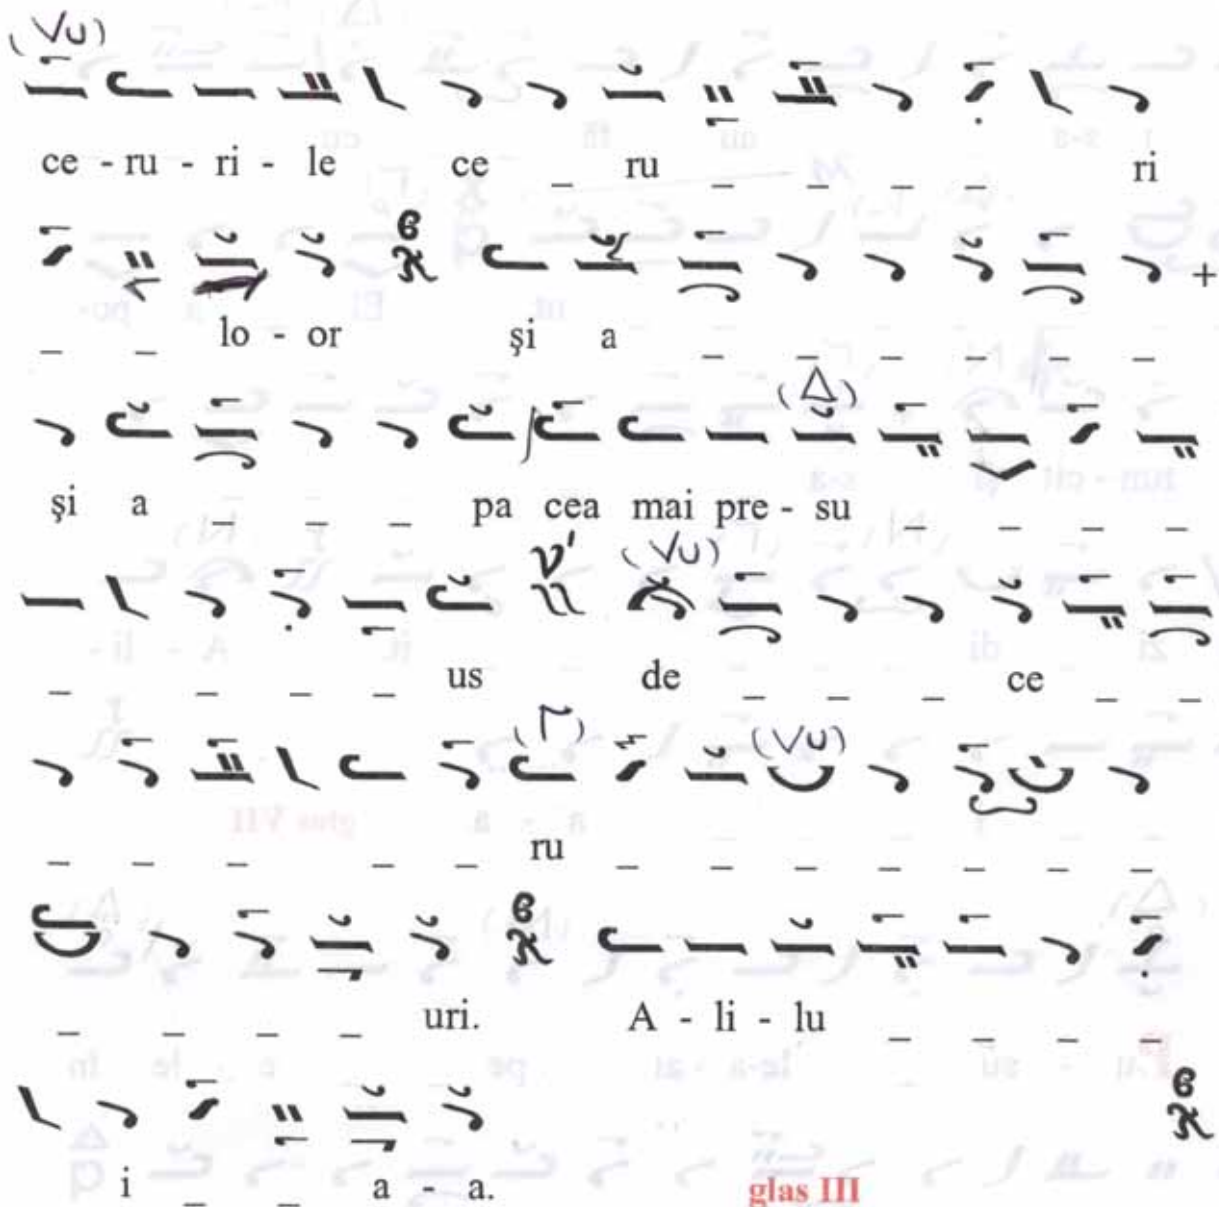 (Vu)
ce - ru - ri - le ce _ ru _ _ _ _ ri
_ _ lo - or și a _ _ _ _ _ _
(Δ)
și a _ _ _ pa cea mai pre - su _ _ _ _
ν' (Vu)
_ _ _ _ us de _ _ _ ce _ _
(Γ) (Vu)
_ _ _ _ _ ru _ _ _ _ _ _ _
_ _ _ _ uri. A - li - lu _ _ _ _
i _ _ a - a. glas III